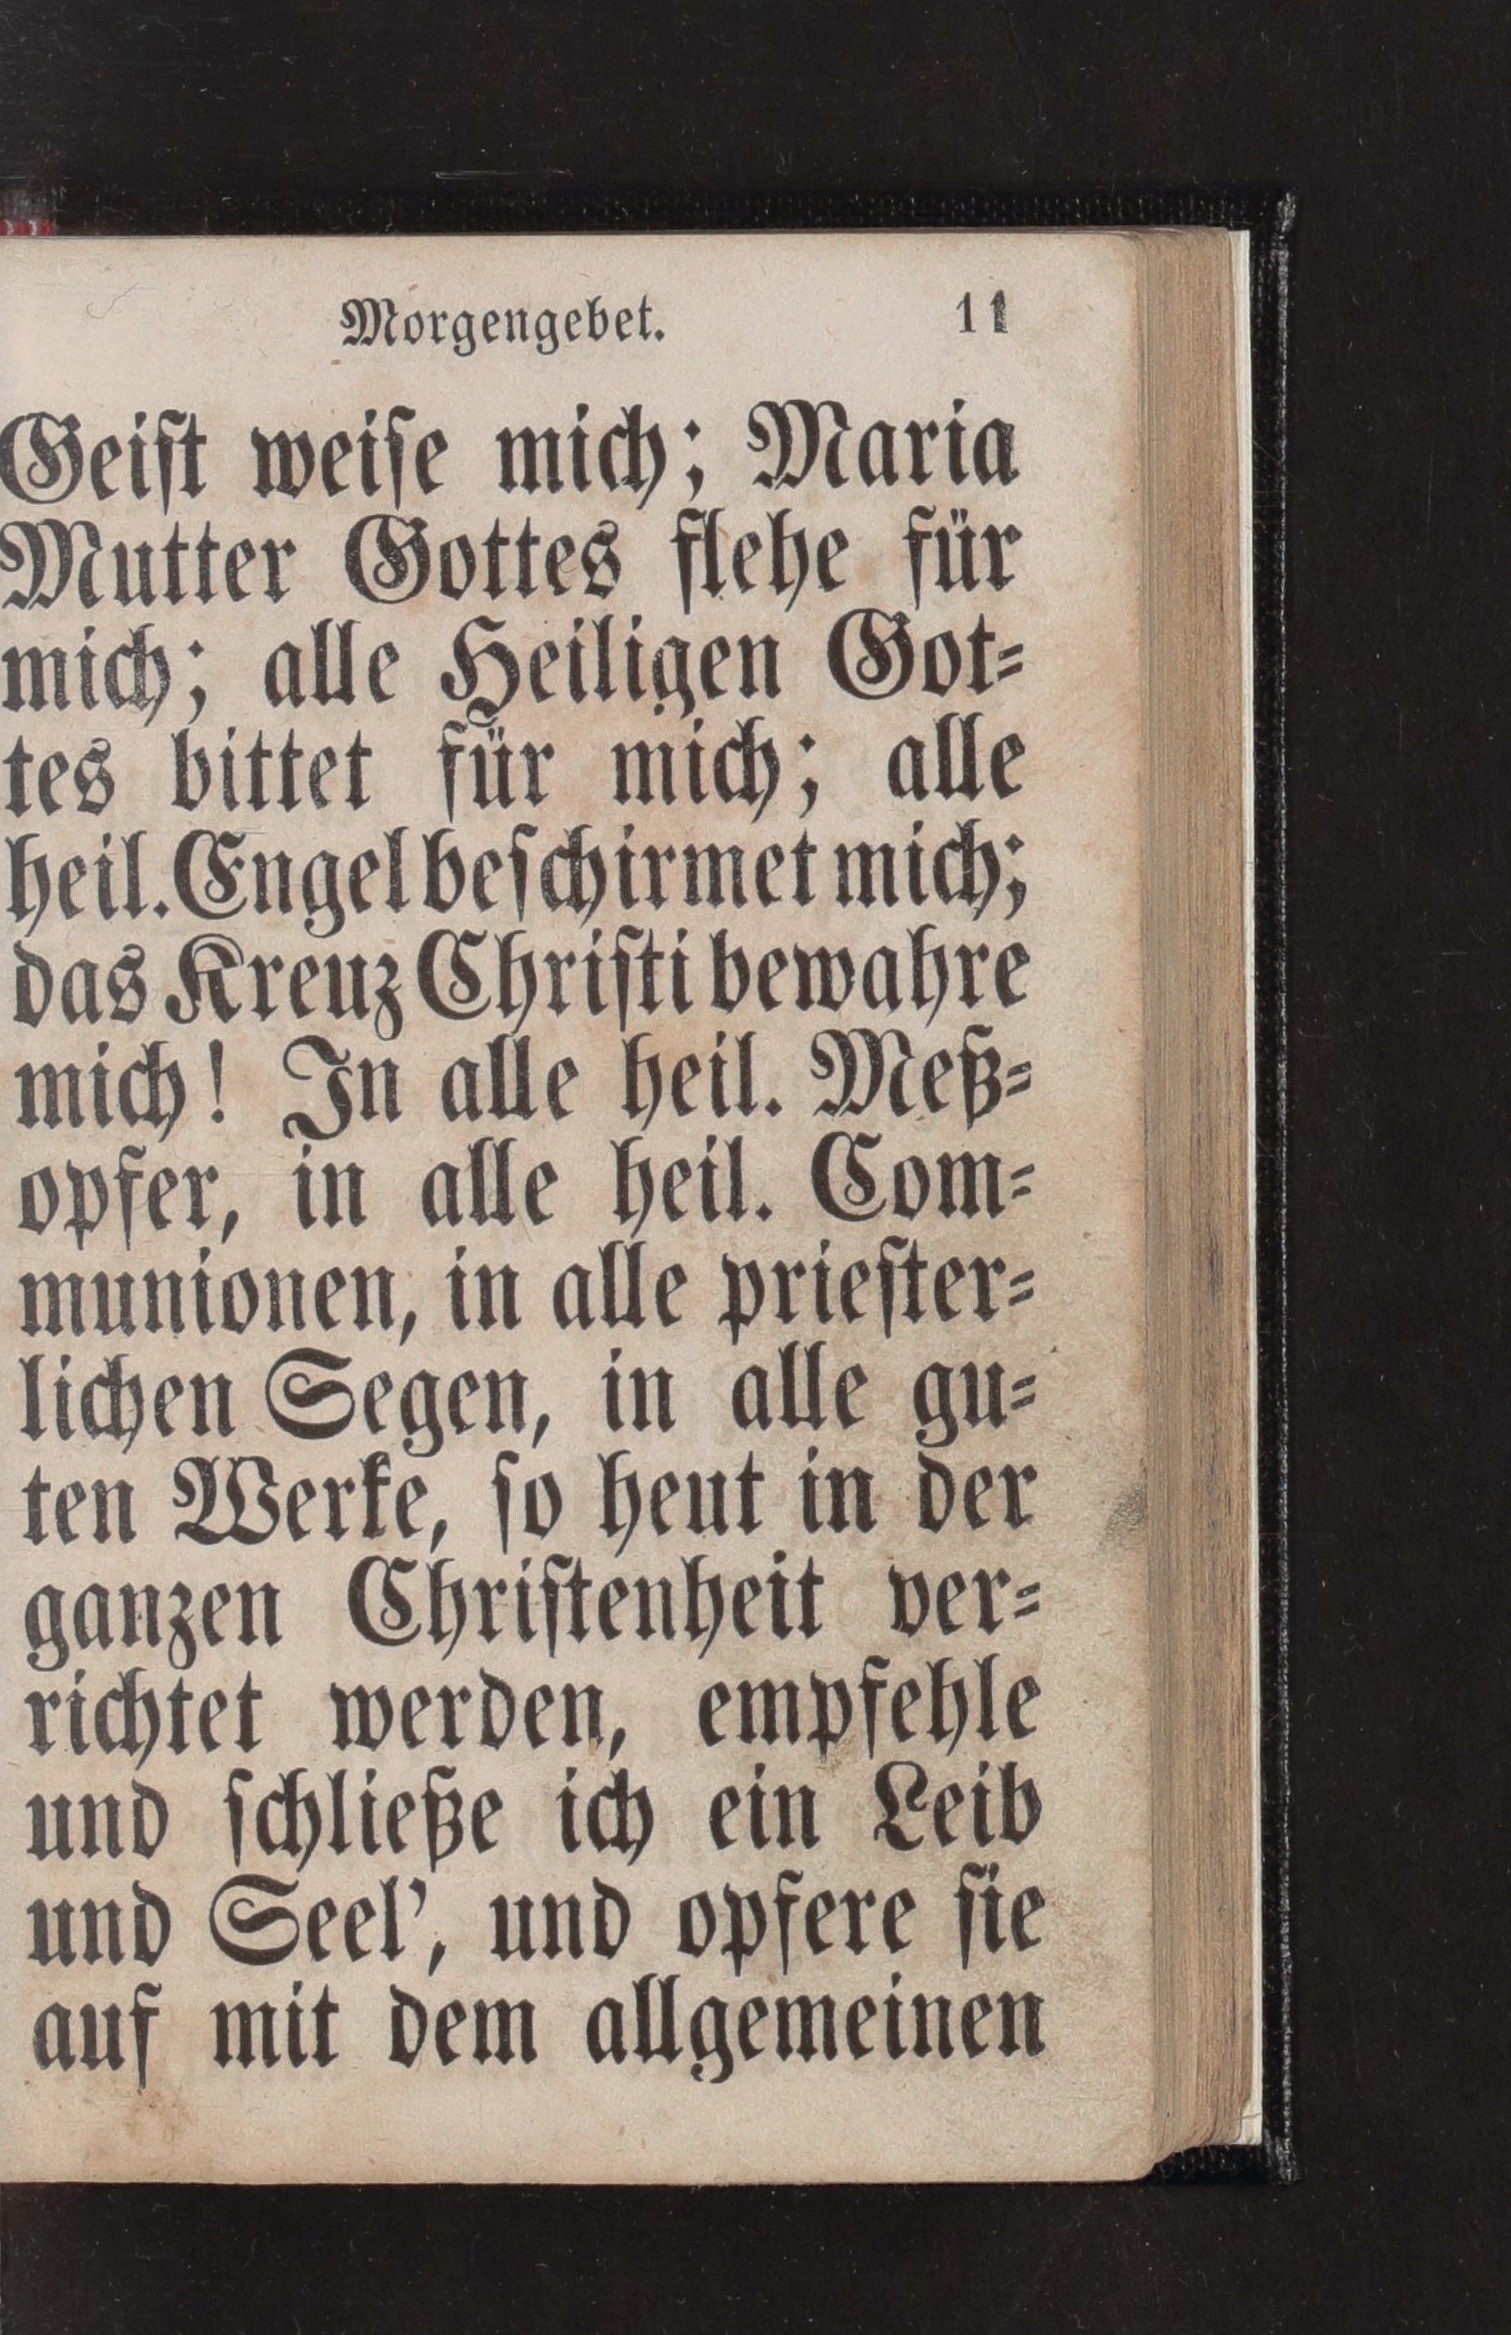 Morgengebet. 11
Geiſt weiſe mich; Maria
Mutter Gottes flehe für
mich; alle Heiligen Got⸗
tes bittet für mich; alle
heil. Engel beſchirmet mich;
das Kreuz Chriſti bewahre
mich! In alle heil. Meß⸗
opfer, in alle heil. Com⸗
munionen, in alle prieſter⸗
lichen Segen, in alle gu⸗
ten Werke, ſo heut in der
ganzen Chriſtenheit ver⸗
richtet werden, empfehle
und ſchließe ich ein Leib
und Seel’, und opfere ſie
auf mit dem allgemeinen